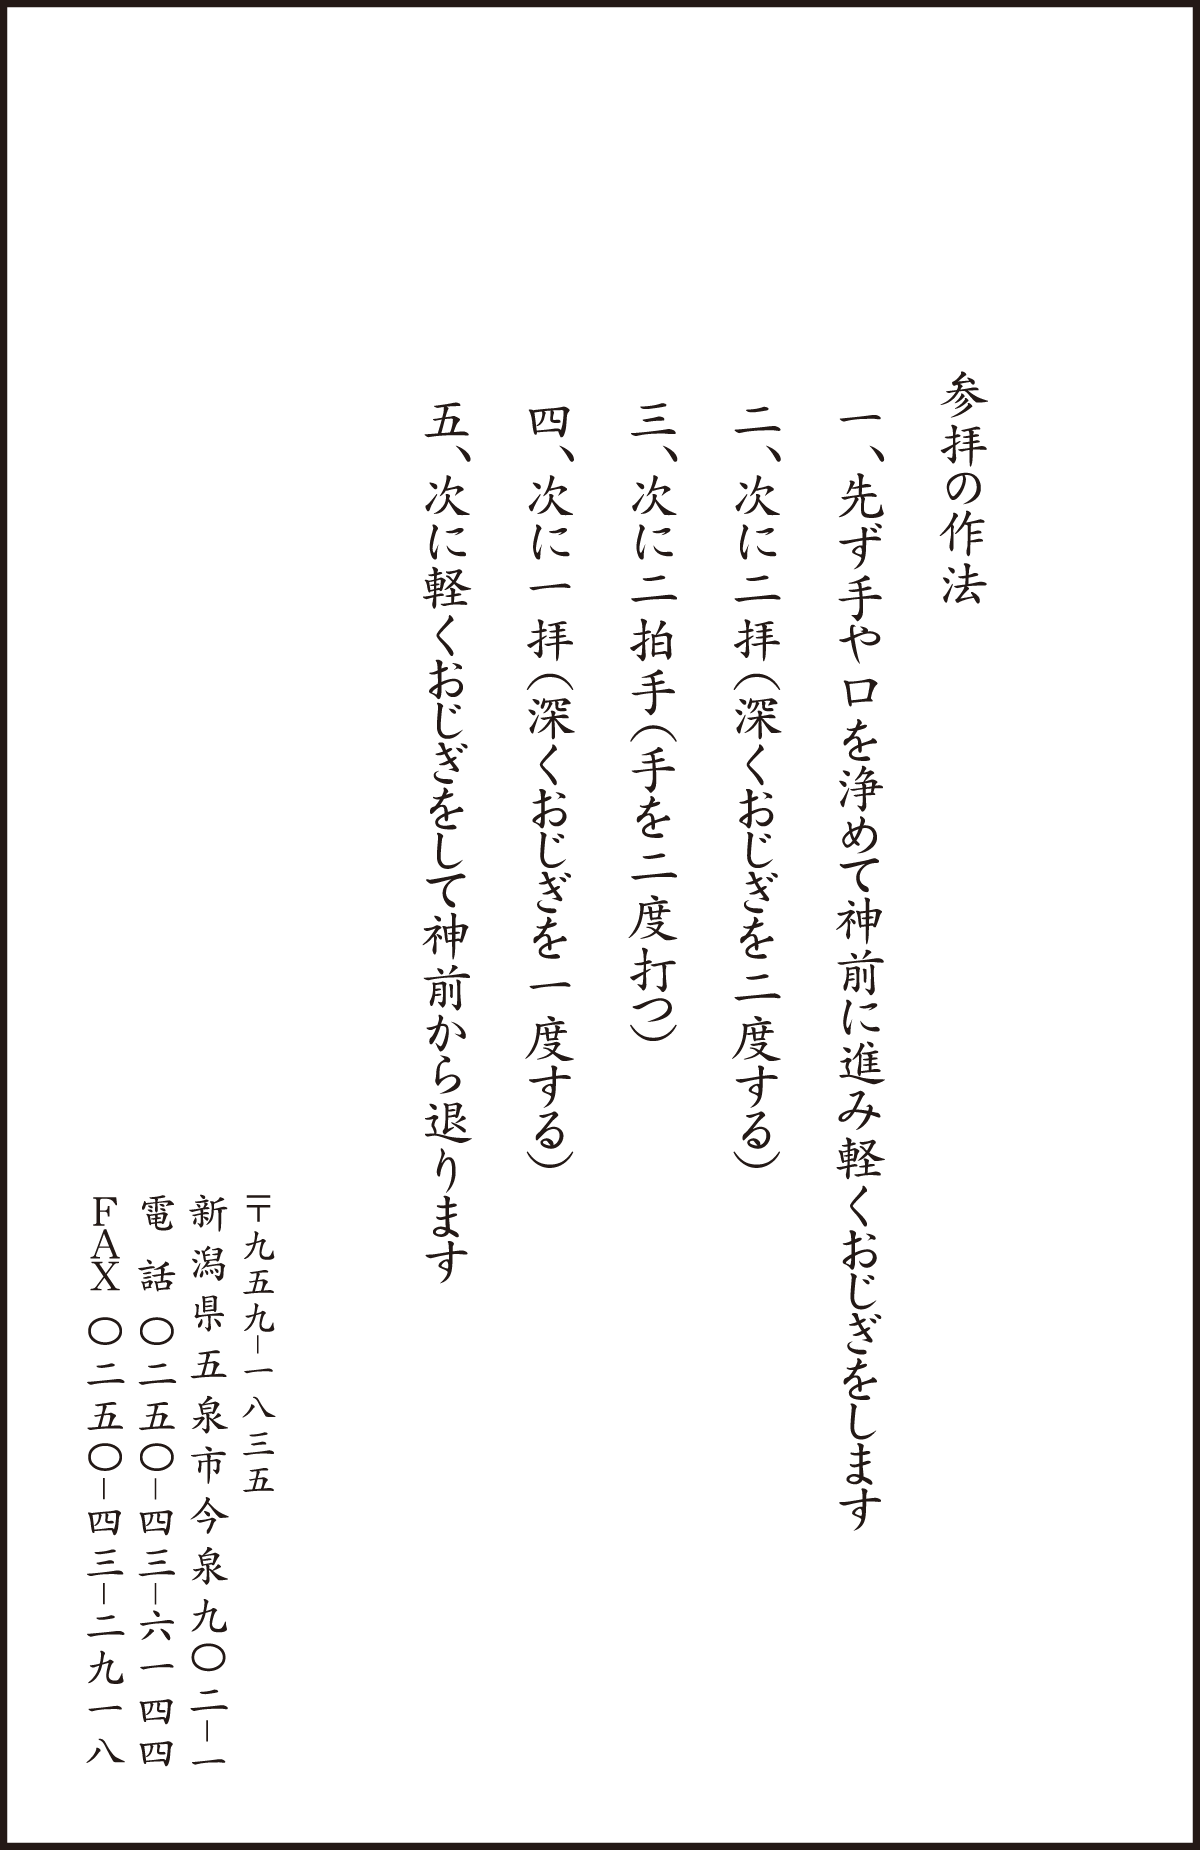 参拝の作法
一、先ず手や口を浄めて神前に進み軽くおじぎをします
二、次に二拝（深くおじぎを二度する）
三、次に二拍手（手を二度打つ）
四、次に一拝（深くおじぎを一度する）
五、次に軽くおじぎをして神前から退ります
〒九五九－一八三五
新潟県五泉市今泉九〇二－一
電話〇二五〇－四三－六一四四
ＦＡＸ〇二五〇－四三－二九一八